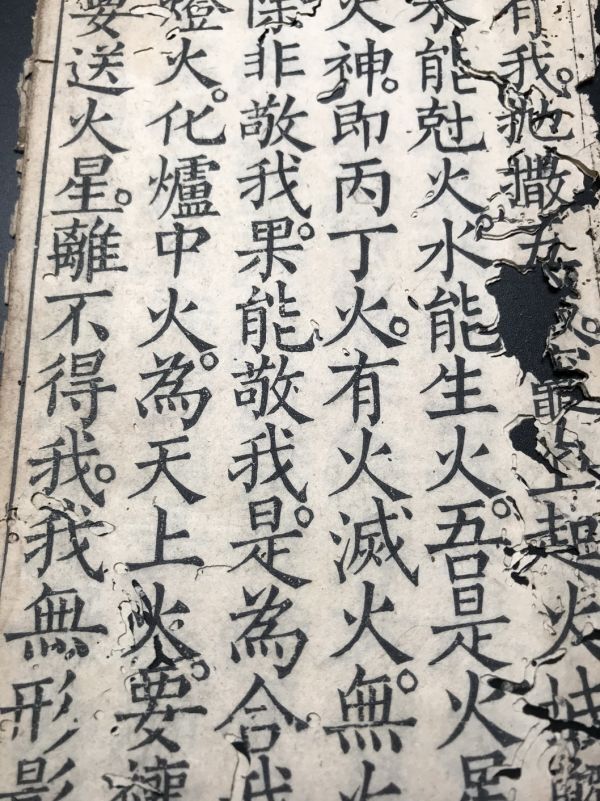 有我。抛撒五竈上起火
水能尅火。水能生火。吾是火星
火神。即丙丁火。有火滅火。無火
除非敬我。果能敬我。是為合我
燈火。化爐中火。為天上火。要禳
要送火星。離不得我。我無形影